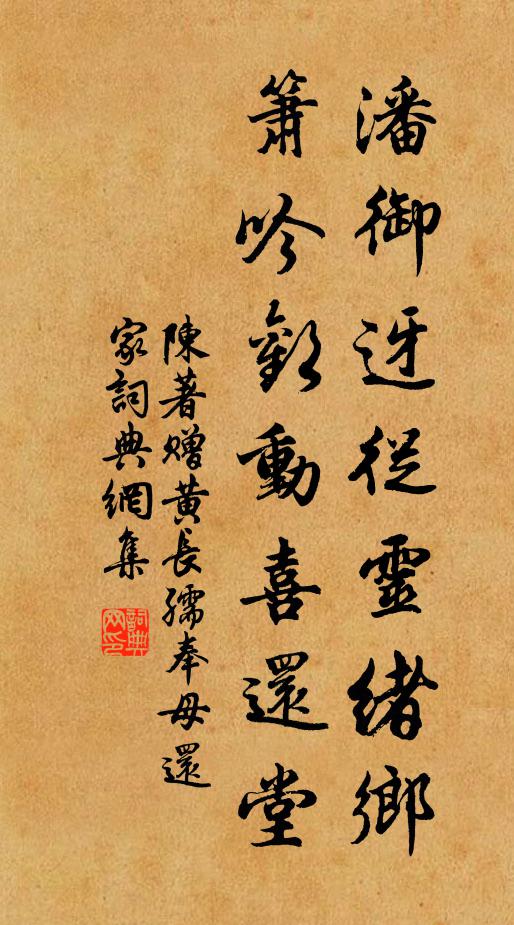 潘御迓從靈緒鄉
簫吟歡動喜還堂
陳著贈黃長孺奉母還
家詞典網集
詞典網印